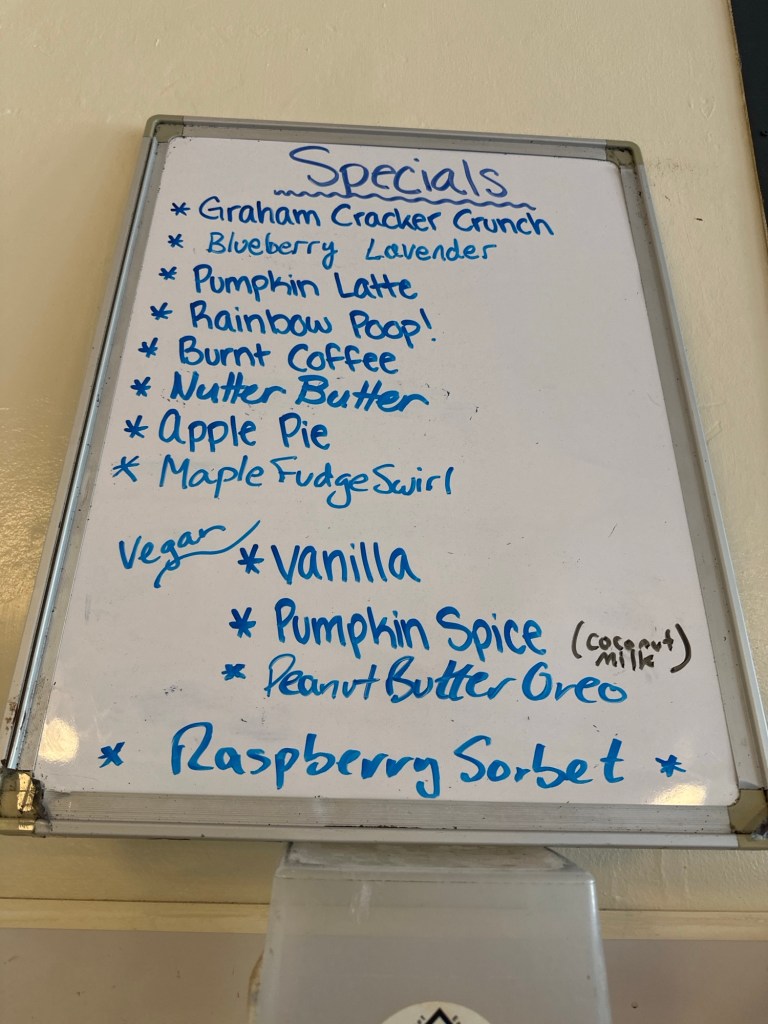 Specials
* Graham Cracker Crunch
* Blueberry Lavender
* Pumpkin Latte
* Rainbow Poop!
* Burnt Coffee
* Nutter Butter
* Apple Pie
* Maple Fudge Swirl
Vegan * Vanilla
* Pumpkin Spice (coconut milk)
* Peanut Butter Oreo
* Raspberry Sorbet *